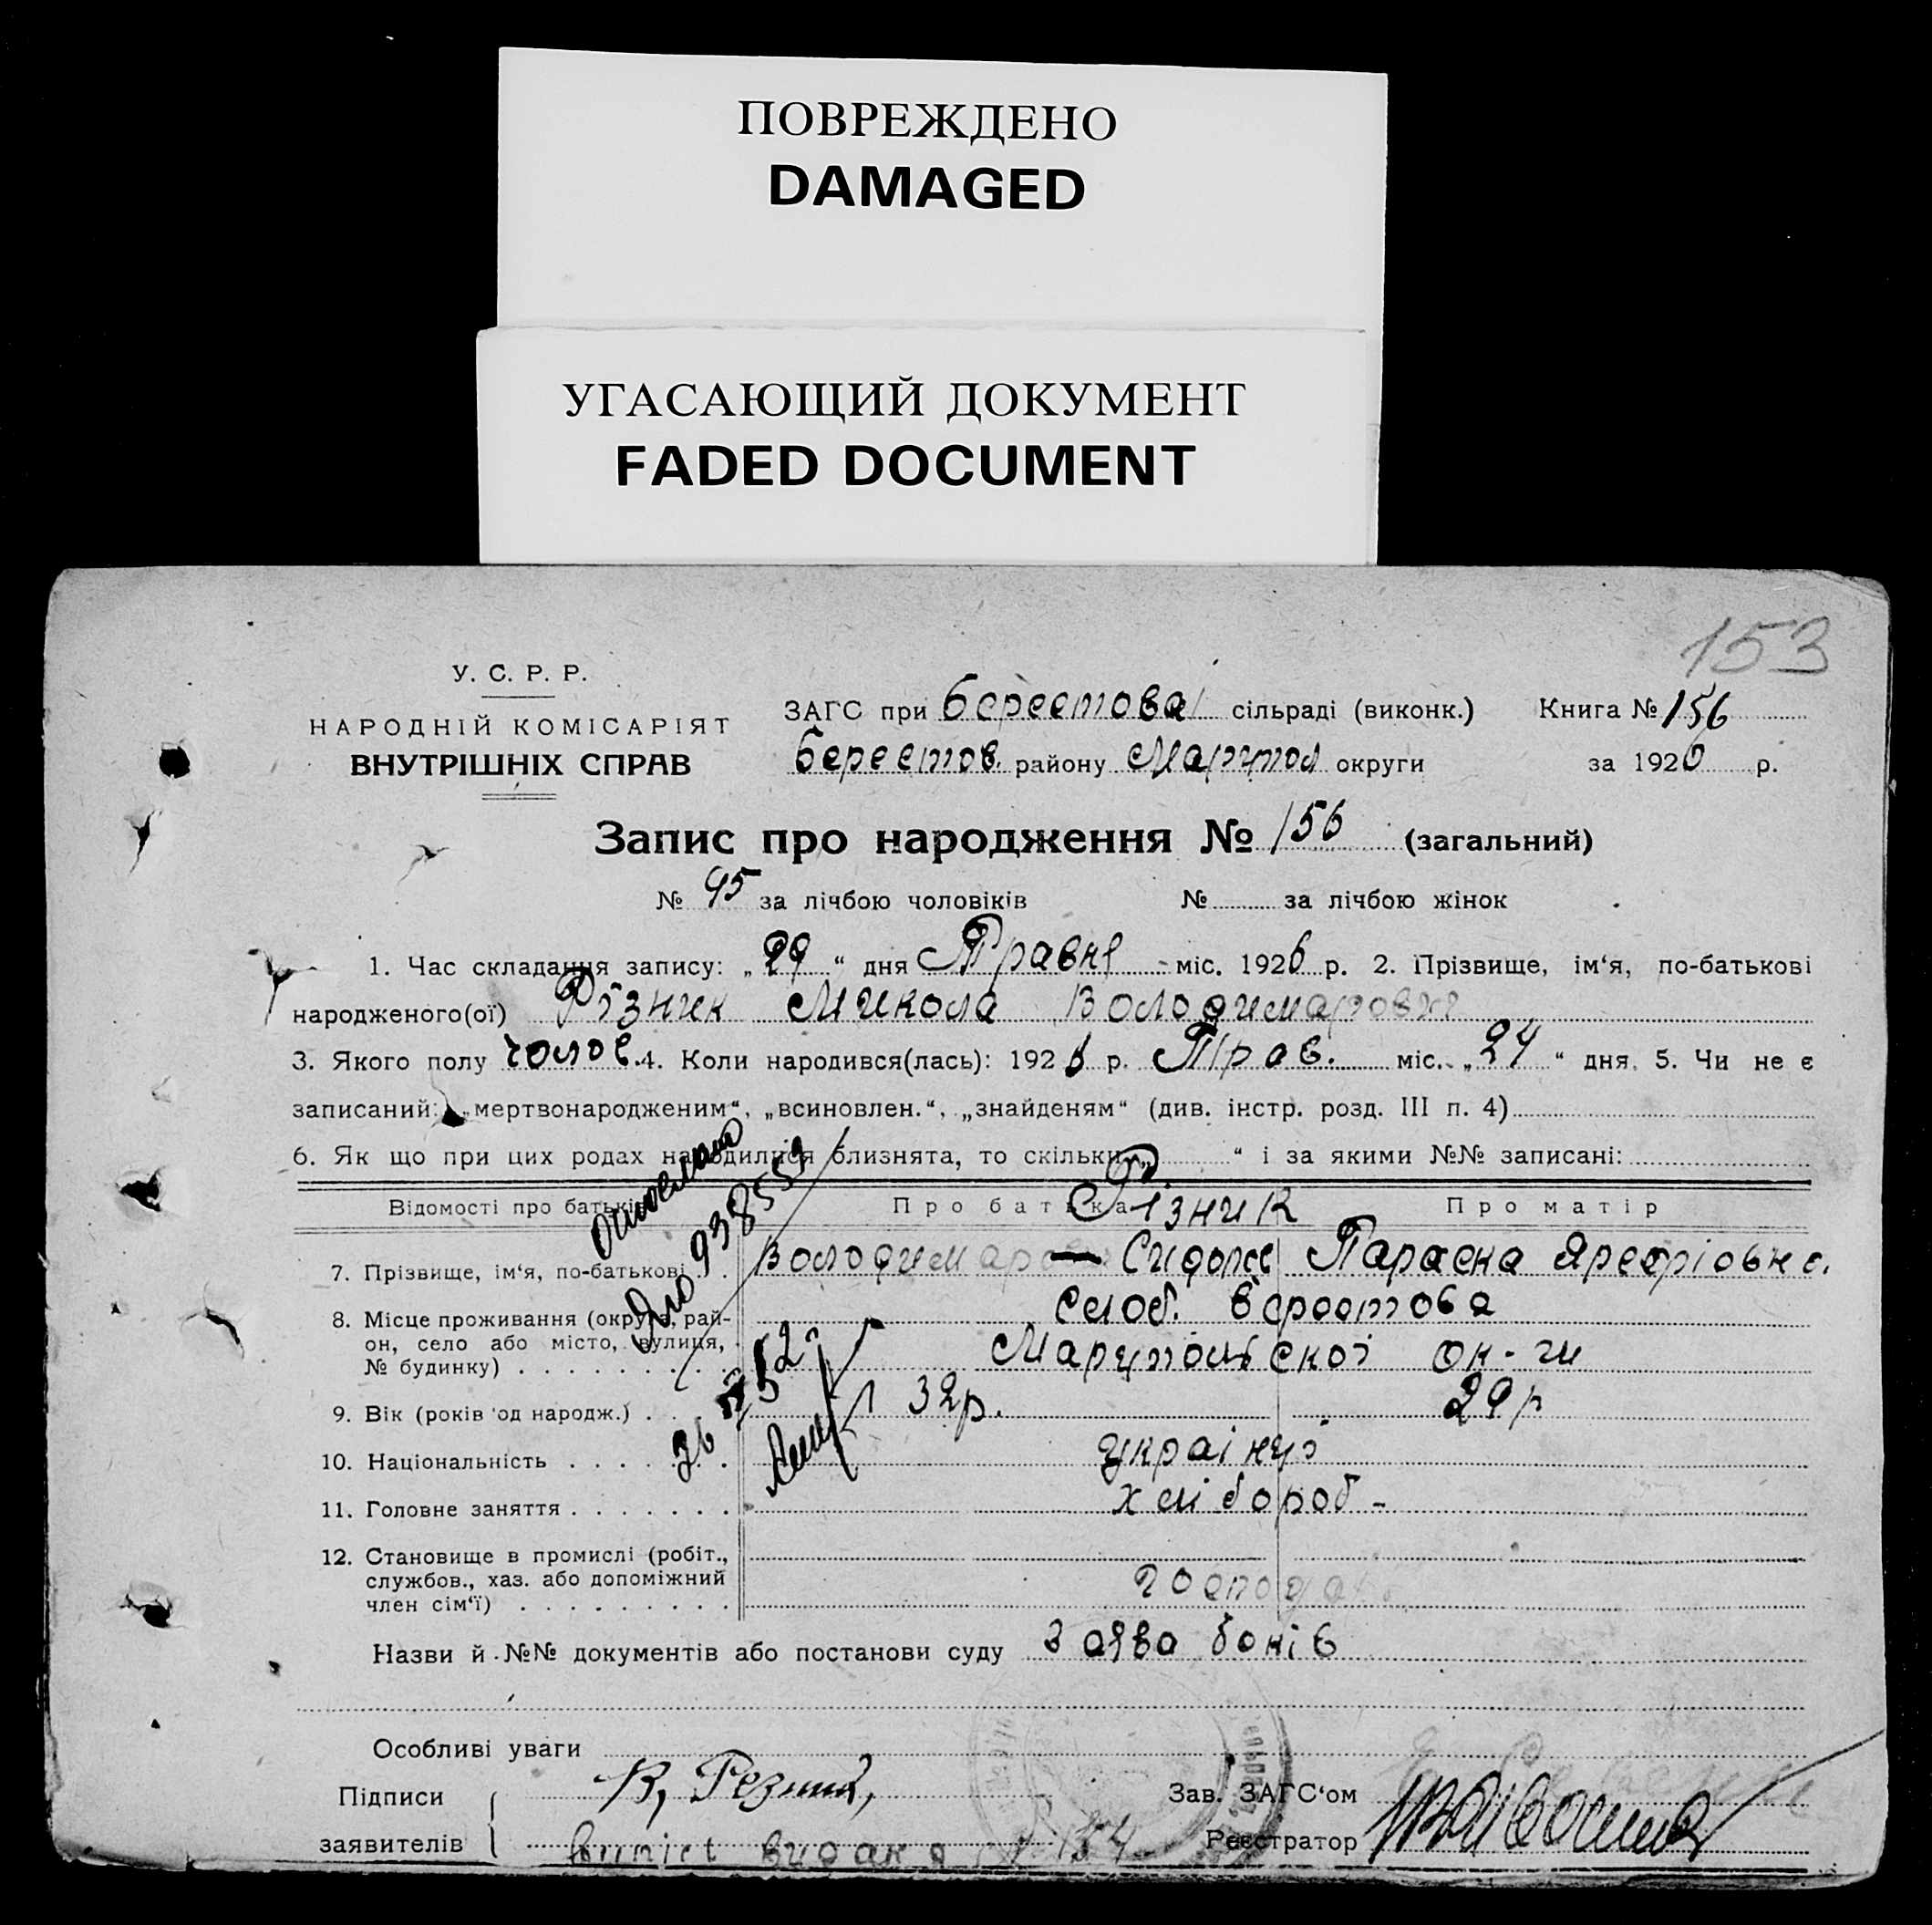 ПОВРЕЖДЕНО
DAMAGED
УГАСАЮЩИЙ ДОКУМЕНТ
FADED DOCUMENT
153
У. С. Р. Р.
НАРОДНІЙ КОМІСАРІЯТ
ВНУТРІШНІХ СПРАВ
ЗАГС при Берестова сільраді (виконк.) Книга № 156
Берестов. району Маріупол округи за 1926 р.
Запис про народження № 156 (загальний)
№ 95 за лічбою чоловіків № за лічбою жінок
1. Час складання запису: „29“ дня Травня міс. 1926 р. 2. Прізвище, ім‘я, по-батькові
народженого(ої) Різник Микола Володимарович
3. Якого полу чолов. 4. Коли народився(лась): 1926 р. Трав. міс. „24“ дня. 5. Чи не є
записаний: „мертвонародженим“, „всиновлен.“, „знайденям“ (див. інстр. розд. III п. 4)
6. Як що при цих родах народилися близнята, то скільки „ “ і за якими №№ записані:
Відомості про батьків Про батька Про матір
Різник
7. Прізвище, ім‘я, по-батькові Володимар Сидоров Параска
8. Місце проживання (округа, район, село або місто, вулиця, № будинку) Слоб. Берестова
Маріупольскої ок-ги
9. Вік (років од народж.) 32р. 29р
10. Національність українці
11. Головне заняття хлібороб-
12. Становище в промислі (робіт., службов., хаз. або допоміжний член сім‘ї) господар
Назви й №№ документів або постанови суду Заява
Особливі уваги
Підписи заявителів В, Резник,
Зав. ЗАГС‘ом
видана 154
Реєстратор